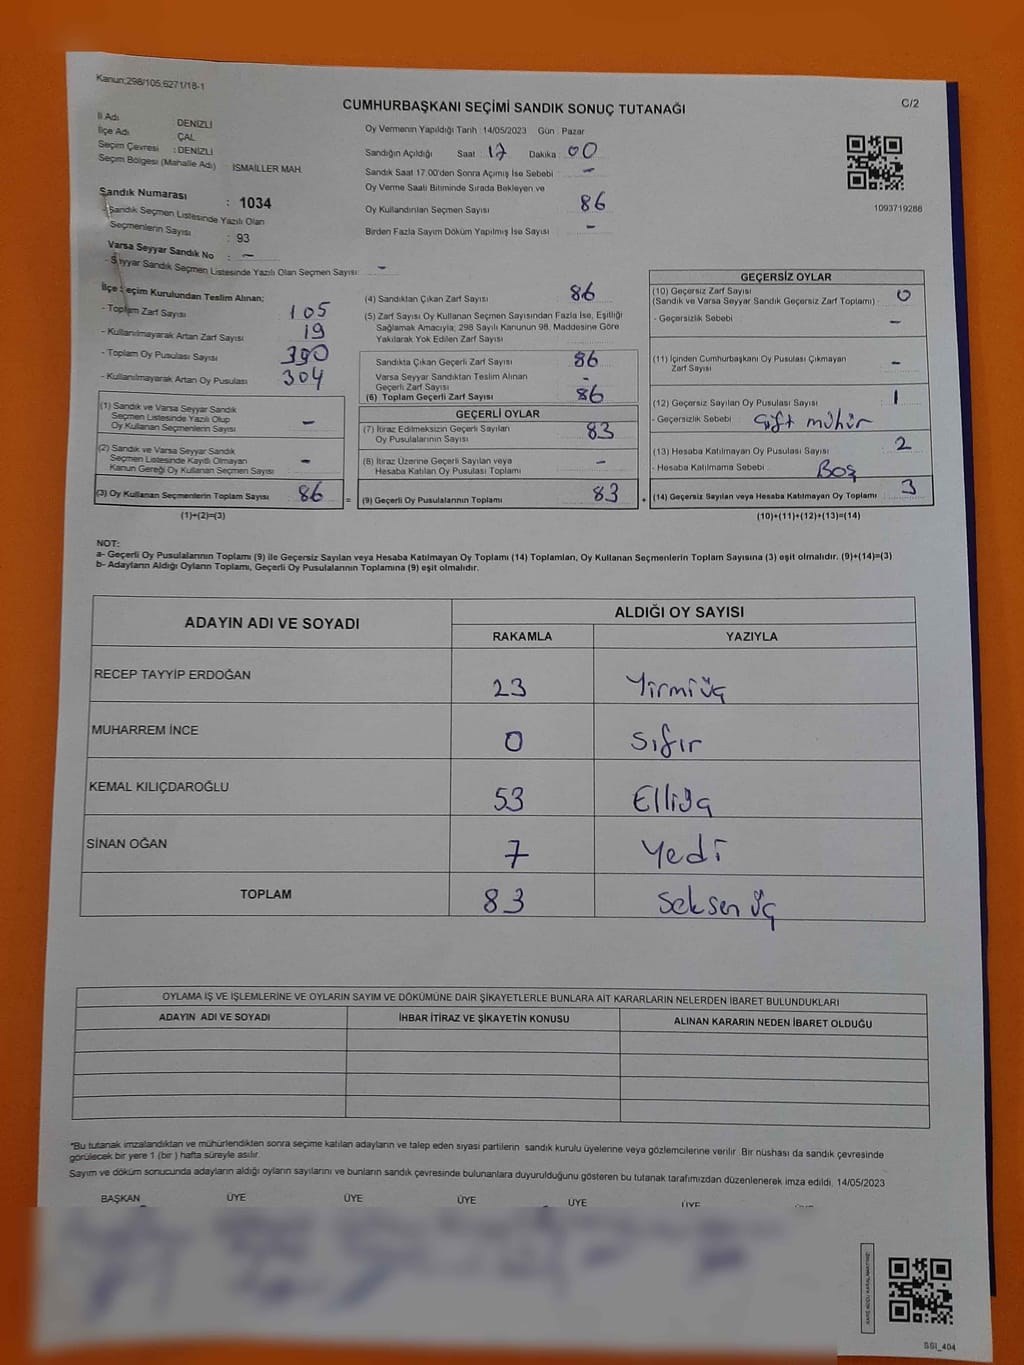 Kanun;298/105,6271/18-1
C/2
CUMHURBAŞKANI SEÇİMİ SANDIK SONUÇ TUTANAĞI
İl Adı : DENİZLİ
İlçe Adı : ÇAL
Seçim Çevresi : DENİZLİ
Seçim Bölgesi (Mahalle Adı) : İSMAİLLER MAH.
Sandık Numarası : 1034
- Sandık Seçmen Listesinde Yazılı Olan
Seçmenlerin Sayısı : 93
Varsa Seyyar Sandık No : -
- Seyyar Sandık Seçmen Listesinde Yazılı Olan Seçmen Sayısı: -
Oy Vermenin Yapıldığı Tarih :14/05/2023 Gün : Pazar
Sandığın Açıldığı Saat : 17 Dakika : 00
Sandık Saat 17.00'den Sonra Açımış İse Sebebi : -
Oy Verme Saati Bitiminde Sırada Bekleyen ve
Oy Kullandırılan Seçmen Sayısı : 86
Birden Fazla Sayım Döküm Yapılmış İse Sayısı : -
1093719286
İlçe Seçim Kurulundan Teslim Alınan;
- Toplam Zarf Sayısı 105
- Kullanılmayarak Artan Zarf Sayısı 19
- Toplam Oy Pusulası Sayısı 390
- Kullanılmayarak Artan Oy Pusulası 304
(1) Sandık ve Varsa Seyyar Sandık
Seçmen Listesinde Yazılı Olup
Oy Kullanan Seçmenlerin Sayısı -
(2) Sandık ve Varsa Seyyar Sandık
Seçmen Listesinde Kayıtlı Olmayan
Kanun Gereği Oy Kullanan Seçmen Sayısı -
(3) Oy Kullanan Seçmenlerin Toplam Sayısı 86 =
(1)+(2)=(3)
(4) Sandıktan Çıkan Zarf Sayısı 86
(5) Zarf Sayısı Oy Kullanan Seçmen Sayısından Fazla İse, Eşitliği
Sağlamak Amacıyla; 298 Sayılı Kanunun 98. Maddesine Göre
Yakılarak Yok Edilen Zarf Sayısı
Sandıkta Çıkan Geçerli Zarf Sayısı 86
Varsa Seyyar Sandıktan Teslim Alınan
Geçerli Zarf Sayısı -
(6) Toplam Geçerli Zarf Sayısı 86
GEÇERLİ OYLAR
(7) İtiraz Edilmeksizin Geçerli Sayılan
Oy Pusulalarının Sayısı 83
(8) İtiraz Üzerine Geçerli Sayılan veya
Hesaba Katılan Oy Pusulası Toplamı -
(9) Geçerli Oy Pusulalarının Toplamı 83 +
GEÇERSİZ OYLAR
(10) Geçersiz Zarf Sayısı
(Sandık ve Varsa Seyyar Sandık Geçersiz Zarf Toplamı) 0
- Geçersizlik Sebebi -
(11) İçinden Cumhurbaşkanı Oy Pusulası Çıkmayan
Zarf Sayısı -
(12) Geçersiz Sayılan Oy Pusulası Sayısı 1
- Geçersizlik Sebebi : Çift mühür
(13) Hesaba Katılmayan Oy Pusulası Sayısı 2
- Hesaba Katılmama Sebebi : Boş
(14) Geçersiz Sayılan veya Hesaba Katılmayan Oy Toplamı 3
(10)+(11)+(12)+(13)=(14)
NOT:
a- Geçerli Oy Pusulalarının Toplamı (9) ile Geçersiz Sayılan veya Hesaba Katılmayan Oy Toplamı (14) Toplamları, Oy Kullanan Seçmenlerin Toplam Sayısına (3) eşit olmalıdır. (9)+(14)=(3)
b- Adayların Aldığı Oyların Toplamı, Geçerli Oy Pusulalarının Toplamına (9) eşit olmalıdır.
ADAYIN ADI VE SOYADI
ALDIĞI OY SAYISI
RAKAMLA YAZIYLA
RECEP TAYYİP ERDOĞAN 23 Yirmiüç
MUHARREM İNCE 0 Sıfır
KEMAL KILIÇDAROĞLU 53 Elliüç
SİNAN OĞAN 7 Yedi
TOPLAM 83 Seksen üç
OYLAMA İŞ VE İŞLEMLERİNE VE OYLARIN SAYIM VE DÖKÜMÜNE DAİR ŞİKAYETLERLE BUNLARA AİT KARARLARIN NELERDEN İBARET BULUNDUKLARI
ADAYIN ADI VE SOYADI İHBAR İTİRAZ VE ŞİKAYETİN KONUSU ALINAN KARARIN NEDEN İBARET OLDUĞU
*Bu tutanak imzalandıktan ve mühürlendikten sonra seçime katılan adayların ve talep eden siyasi partilerin sandık kurulu üyelerine veya gözlemcilerine verilir. Bir nüshası da sandık çevresinde
görülecek bir yere 1 (bir ) hafta süreyle asılır.
Sayım ve döküm sonucunda adayların aldığı oyların sayılarını ve bunların sandık çevresinde bulunanlara duyurulduğunu gösteren bu tutanak tarafımızdan düzenlenerek imza edildi. 14/05/2023
BAŞKAN ÜYE ÜYE ÜYE ÜYE ÜYE ÜYE
SSI_404